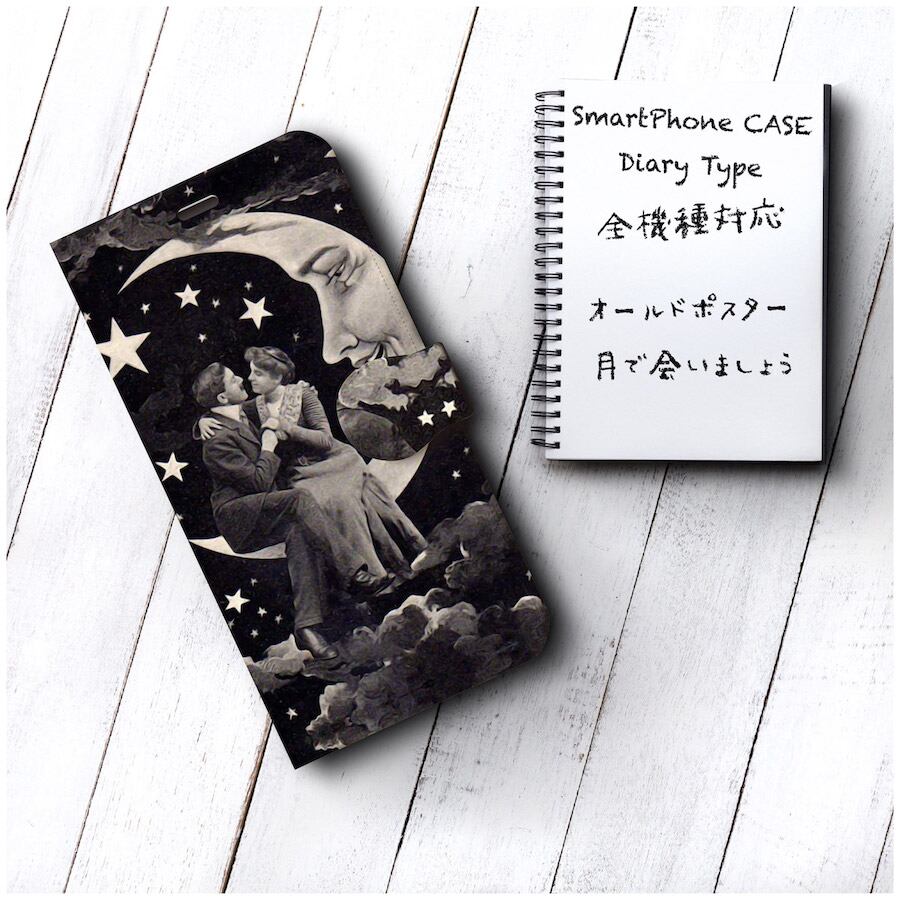 SmartPhone CASE
Diary Type
全機種対応
オールドポスター
月で会いましょう